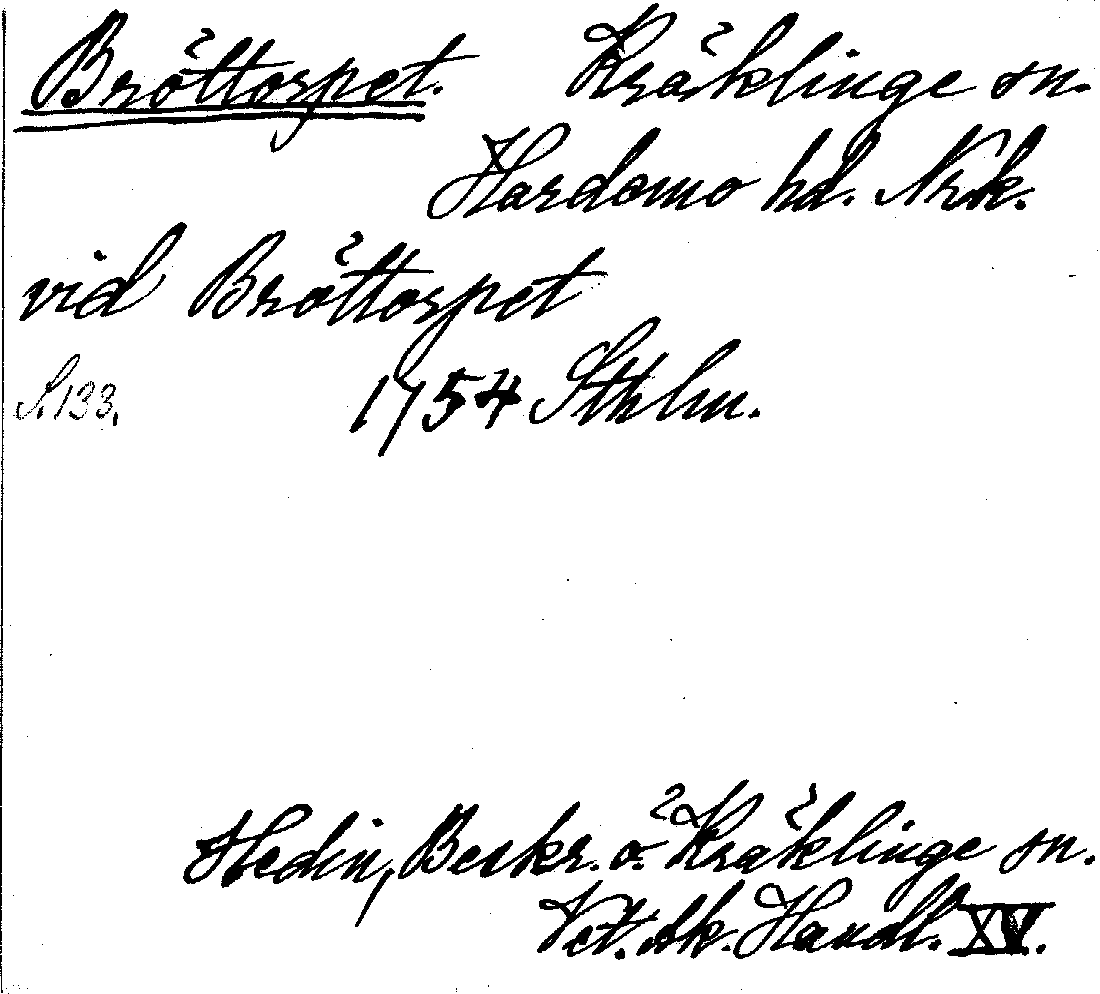 Bröttorpet. Kräklinge sn.
Hardemo hd. Nrk.
vid Bröttorpet
S. 133. 1754 Sthlm.
Hedin, Beskr. ö. Kräklinge sn.
Vet. Ak. Handl. XV.